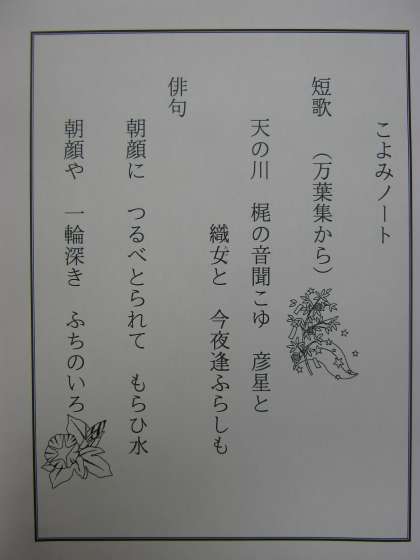 こよみノート
短歌　（万葉集から）
天の川　梶の音聞こゆ　彦星と
織女と　今夜逢ふらしも
俳句
朝顔に　つるべとられて　もらひ水
朝顔や　一輪深き　ふちのいろ